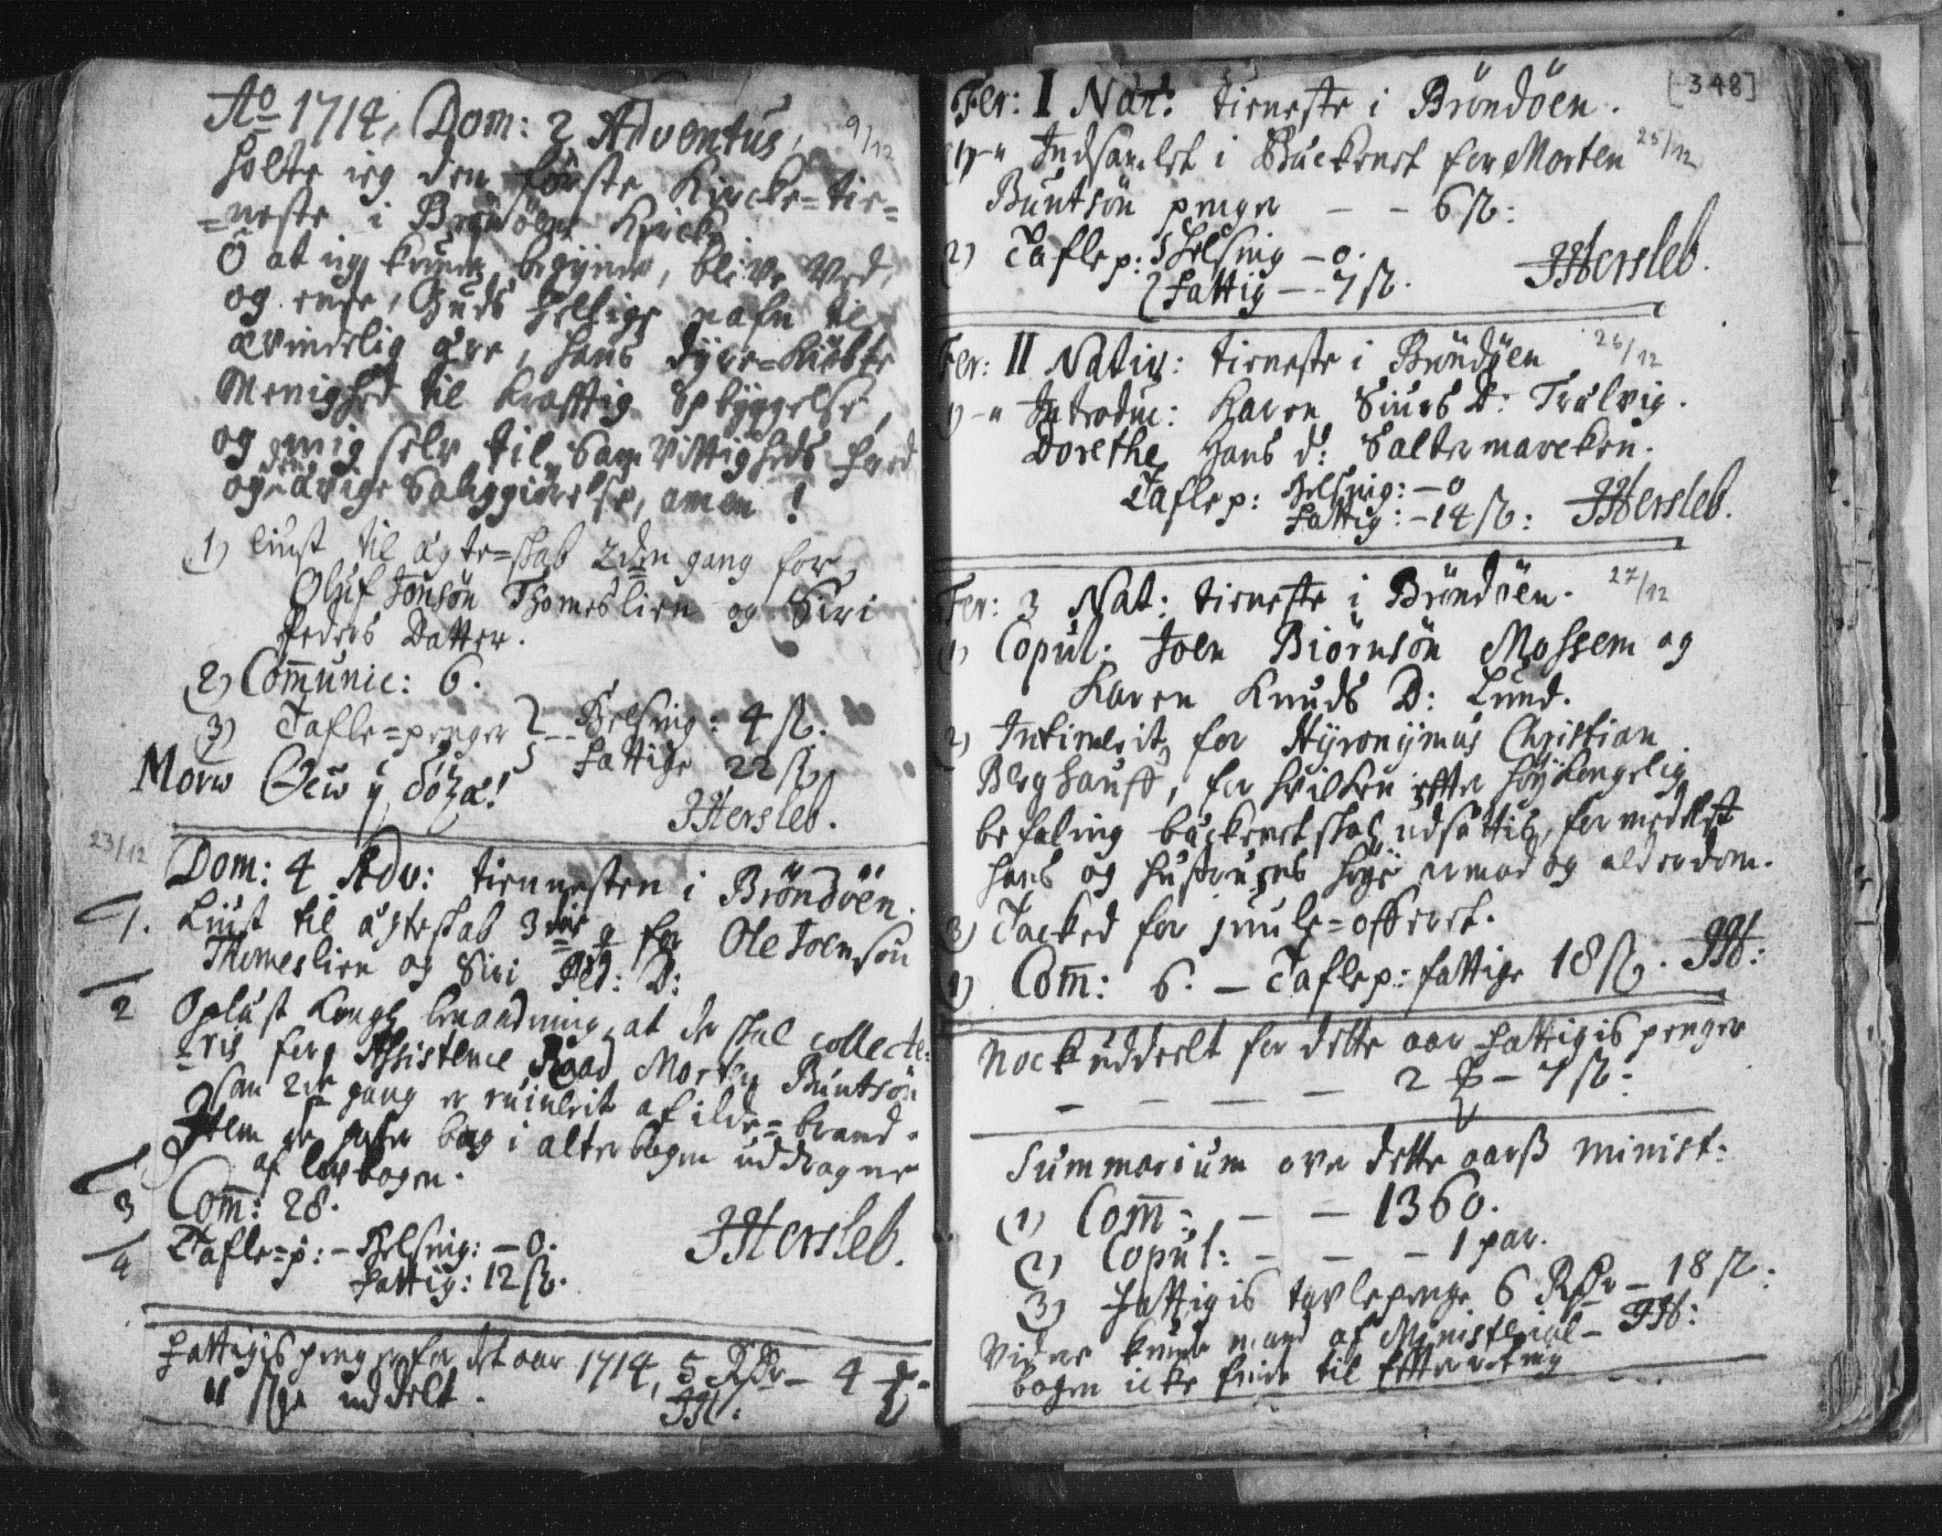 Ao 1714, Dom: 2 Adventus, 9/12
holte ieg den förste Kircke=tie=
=neste i Bröndöens Kircke.
O at ieg kunde begynde, blive ved,
og ende, Guds hellige nafn til
ævindelig ære, hans dyre=kiöbte
Menighed til krafftig opbyggelse,
og mig selv til Samvittigheds fred
og den ævige Saliggiörelse, amen!
(1) liust til ægte=skab 2den gang for
Oluf Jonsön Thomeslien og Siri
Peders Datter.
(2) Communic: 6.
(3) Tafle=penger -- Helsing: 4 ß.
Fattige 22 ß
Monw Θεω η δόξα!
JHersleb.
23/12
Dom: 4 Adv: tiennesten i Bröndöen.
1. Liust til ægteskab 3die g for Ole Joensön
Thomeslien og Siri Ped: D:
2 Oplüst kongl benaadning, at der skal collecte=
=ris for Assistence Raad Morten Buntsön
som 2de gang er ruinerit af ilde=brand.
Item de her bag i alterbogen uddragne
af lovbogen.
3 Com̄: 28.
4 Tafle=p: - Helsing: - 0.
Fattig: 12 ß.
JHersleb.
Fattigis penger for det aar 1714, 5 Rdr - 4
" ße uddelt. JH:
[348]
Fer: I Nat: tieneste i Bröndöen. 25/12
(1) -" Indsamlet i Bäckenet for Morten
Buntsön penger - - 6 ß:
2) Tafle p: Helsing - 0.
Fattig - - 7 ß. JHersleb.
Fer: II Nativ: tieneste i Bröndöen 26/12
1) -" Introduc: Karen Siurs D: Trælvig.
Dorethe Hans d: Saltermarcken.
Tafle p: Helsing: - 0
Fattig: - 14 ß: JHersleb.
Fer: 3 Nat: tieneste i Bröndöen. 27/12
1) Copul: Joen Biörnsön Mossem og
Karen Knuds D: Lund.
2) Intimerit for Hyronymus Christian
Berghauff, for hvilken effter höy kongelig
befaling bäckenet skal udsættis, formedelst
hans og hustruens höye armod og alderdom.
3) Tacked for juule=offeret.
4) Com̄: 6. - Tafle p: fattige 18 ß. JH:
Nock uddeelt for dette aar fattigis penger
- - - - - 2 - 7 ß:
Summarium over dette aarß minist:
(1) Com̄: - - 1360.
(2) Copul: - - - 1 par.
(3) Fattigis tavlepenge 6 Rdr - 18 ß:
Videre kunde mand af Ministerial- JH:
bogen icke finde til Efterretning